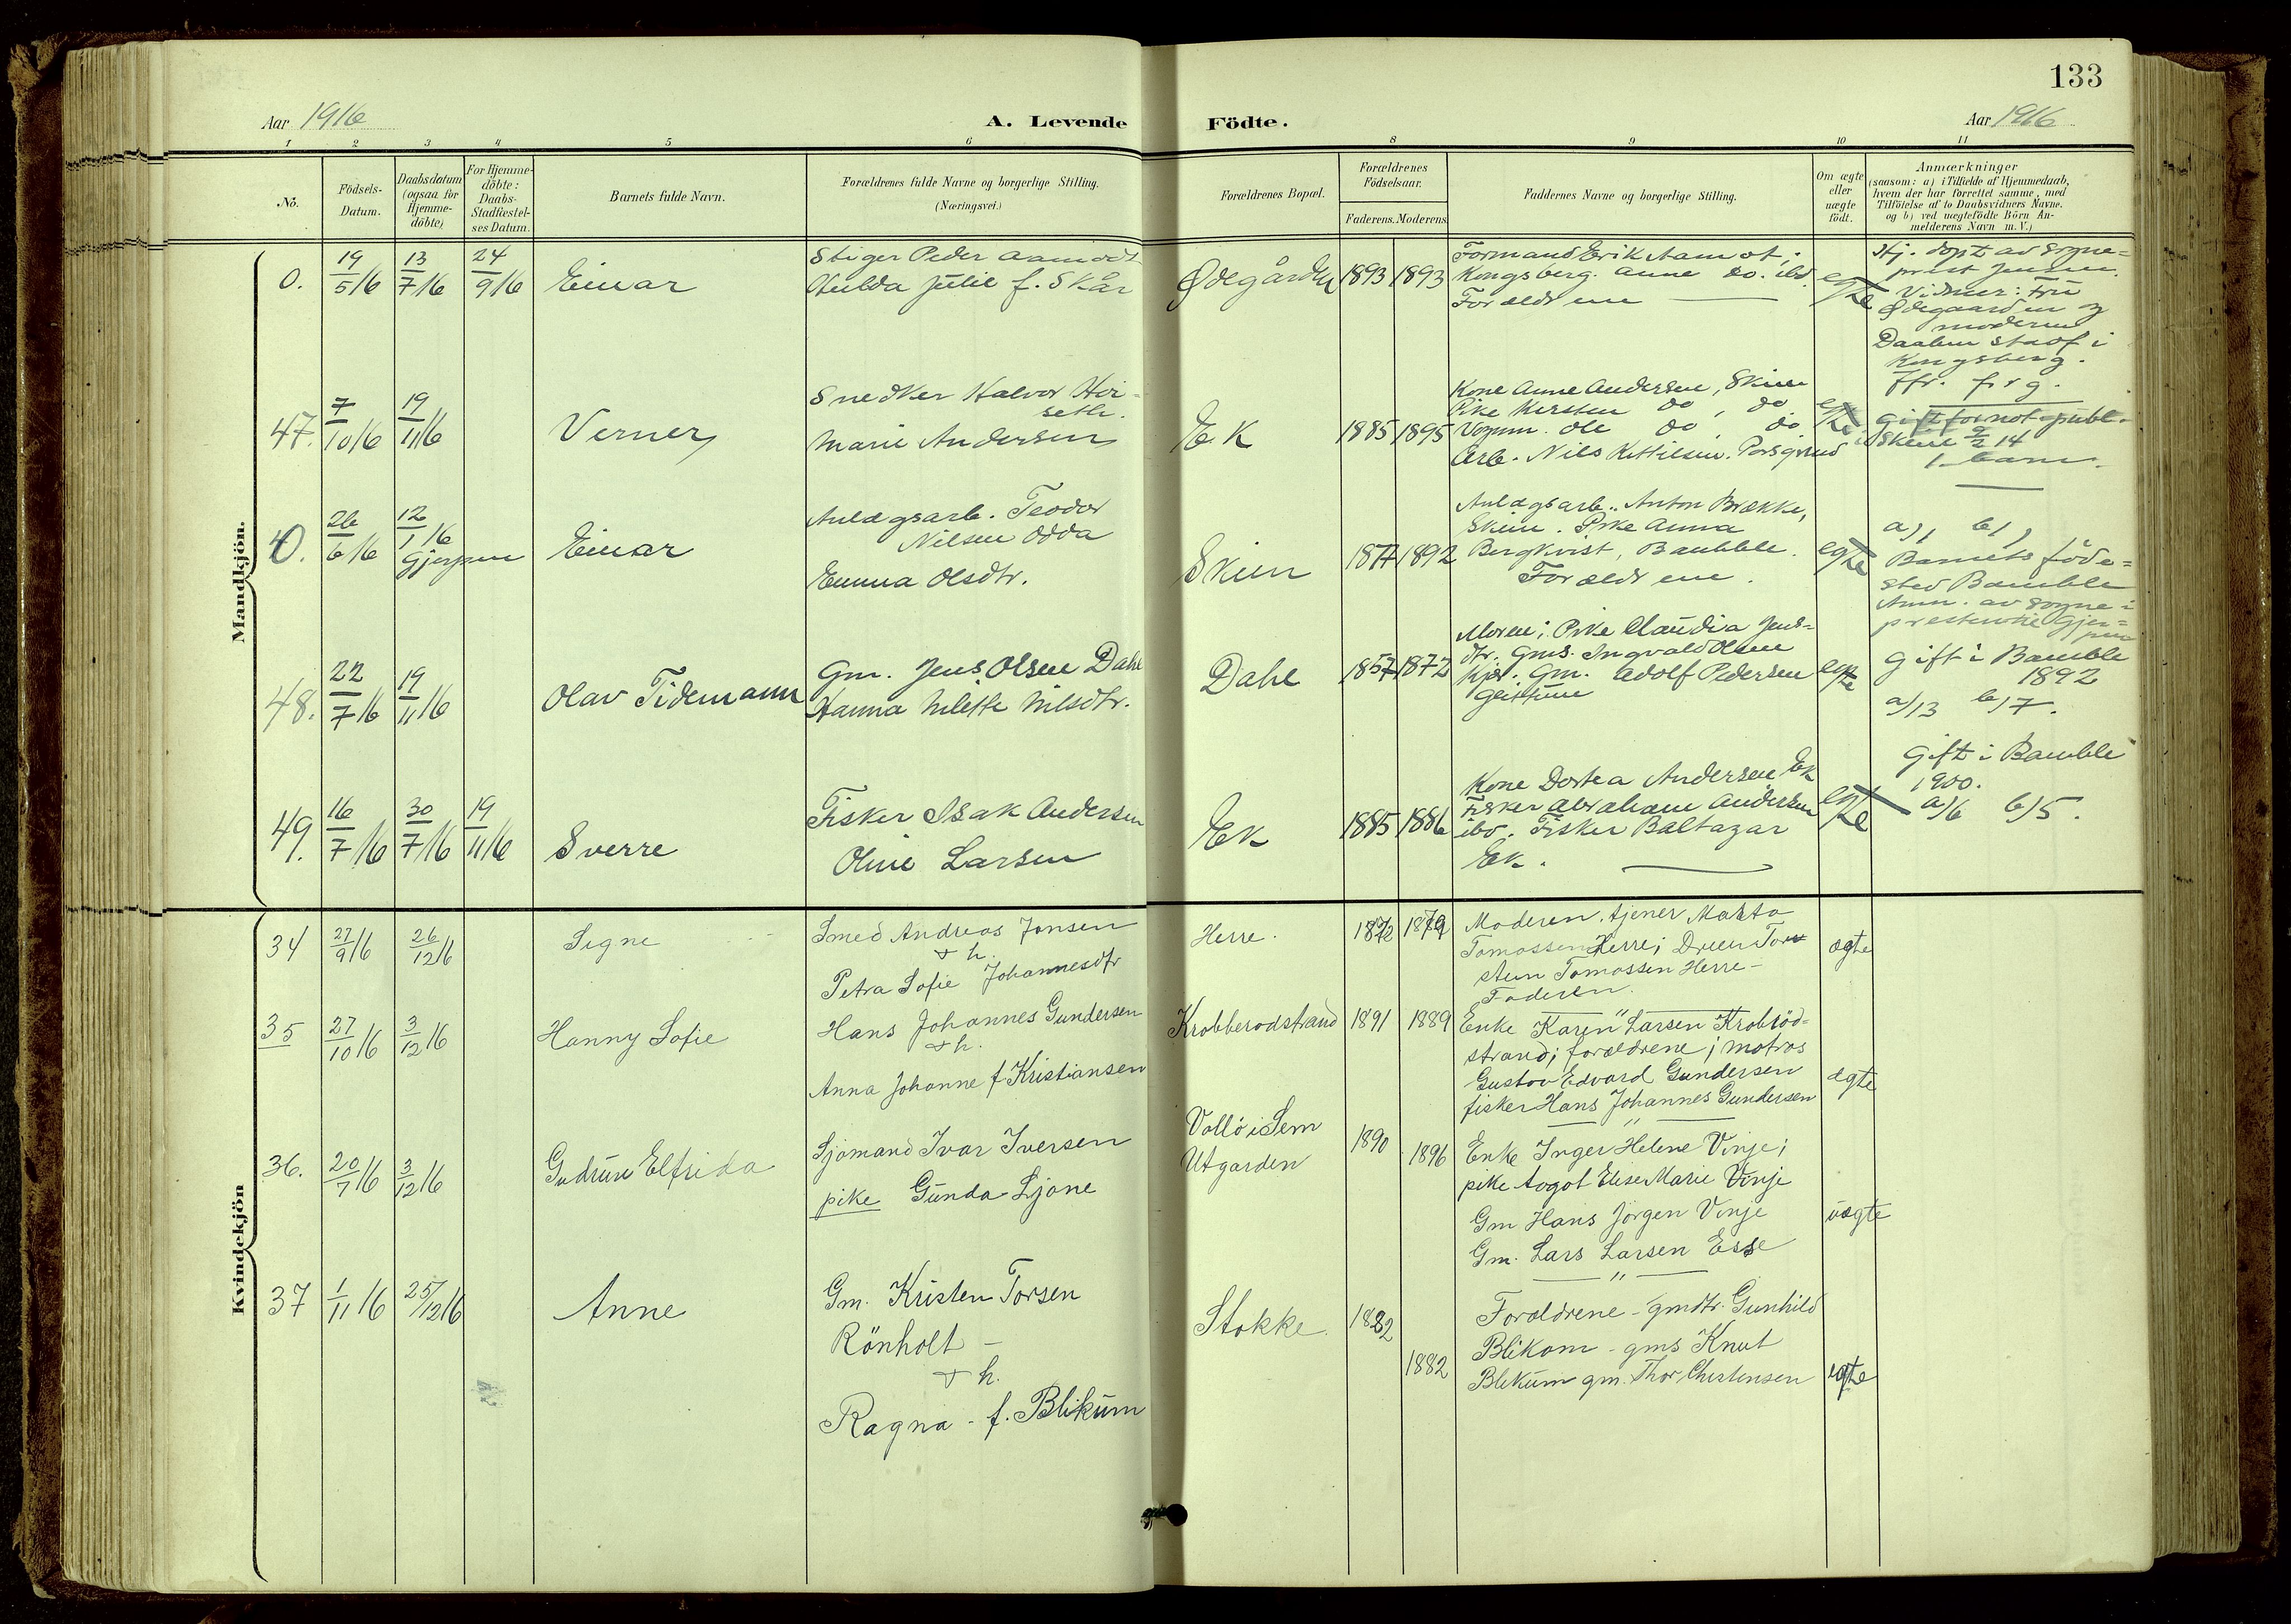 133
Aar 1916
A. Levende Födte.
Aar 1916
1 2 3 4 5 6 8 9 10 11
No.
Födsels-Datum.
Daabsdatum (ogsaa for Hjemme-döbte)
For Hjemme-döbte: Daabs-Stadfæstel-ses Datum.
Barnets fulde Navn.
Forældrenes fulde Navne og borgerlige Stilling.
(Næringsvei.)
Forældrenes Bopæl.
Forældrenes Födselsaar.
Faderens. Moderens.
Faddernes Navne og borgerlige Stilling.
Om ægte eller uægte födt.
Anmærkninger
(saasom: a) i Tilfælde af Hjemmedaab,
hvem der har forrettet samme, med
Tilföielse af to Daabsvidners Navne.
og b) ved uægtefödte Börn An-
melderens Navn m. V.)
Mandkjön.
0.
19/5 16
13/7 16
24/9 16
Einar
Stiger Peder Aamodt
Hulda Julie f. Skår
Ødegården
1893 1893
Formand Erik Aamot,
Kongsberg. Anne do. ibd.
Forældrene
egte
Hj. døpt av sogne-
prest Jensen.
Vidner: Fru
Ødegaarden og
moderen
Daaben stadf i
Kongsberg.
47.
7/10 16
19/11 16
Verner
Snedker Halvor Hei-
seth.
Marie Andersen
Ek
1885 1895
Kone Anne Andersen, Skien
Pike Kirsten do, do
Vognm. Ole do, do
Arb. Nils Kittilsen. Porsgrund
egte
Gift for not. publ.
Skien 2/2 14
1 barn.
0.
26/6 16
12/1 16
Gjerpen
Einar
Anlægsarb. Teodor
Nilsen Odda
Emma Olsdtr.
Skien
1877 1892
Anlægsarb. Anton Brække,
Skien. Pike Anna
Bergkvist, Bambble.
Forældrene.
egte
a) 1 b) 1
Barnets føde-
sted Bamble
Anm. av sogne-
presten i Gjer-
pen
48.
22/7 16
19/11 16
Olav Tidemann
Gm. Jens Olsen Dahl
Hanna Nilette Nilsdtr.
Dahl
1857 1872
Moren; Pike Claudia Jens-
dtr. Gms. Ingvald Olsen
Kjær. Gm. Adolf Pedersen
Geistrum
egte
Gift i Bamble
1892
a) 13 b) 7.
49.
16/7 16
30/7 16
19/11 16
Sverre
Fisker Isak Andersen
Oline Larsen
Ek
1885 1886
Kone Dortea Andersen Ek
Fisker Abraham Andersen
ibd. Fisker Baltazar
Ek.
egte
Gift i Bamble
1900.
a) 6 b) 5.
Kvindekjön
34
27/9 16
26/12 16
Signe
Smed Andreas Jensen
& h.
Petra Sofie Johannesdtr
Herre.
1872 1879
Moderen, tjener Marta
Tomassen Herre; Dreier Tor
stein Tomassen Herre-
Faderen.
ægte
35
27/10 16
3/12 16
Hanny Sofie
Hans Johannes Gundersen
& h.
Anna Johanne f Kristiansen
Krobberodstrand
1891 1889
Enke Karen Larsen Krobröd-
strand; forældrene; matros
Gustav Edvard Gundersen
fisker Hans Johannes Gundersen
ægte
36.
20/7 16
3/12 16
Gudrun Elfrida
Sjömand Ivar Iversen
pike Gunda Ljane
Vallö i Sem
Utgarden
1890 1896
Enke Inger Helene Vinje;
pike Aagot Elise Marie Vinje
Gm Hans Jörgen Vinje
Gm. Lars Larsen Esse
uægte
37
1/11 16
25/12 16
Anne
Gm. Kristen Torsen
Rönholt -
& h.
Ragna - f. Blikum
Stokke.
1882
1882
Forældrene - gmdtr. Gunhild
Blikom - gms Knut
Blekum gm. Thor Christensen
egte